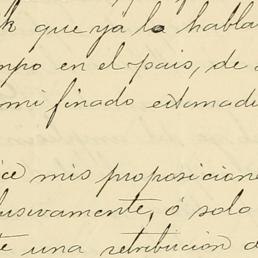 que ya lo habla
mpo en el pais, de
mi finado estimad
ice mis proposicione
lusivamente, ó solo
te una retribucion d